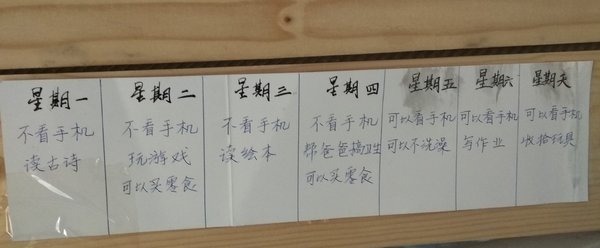 星期一
不看手机
读古诗
星期二
不看手机
玩游戏
可以买零食
星期三
不看手机
读绘本
星期四
不看手机
帮爸爸搞卫生
可以买零食
星期五
可以看手机
可以不洗澡
星期六
可以看手机
写作业
星期天
可以看手机
收拾玩具